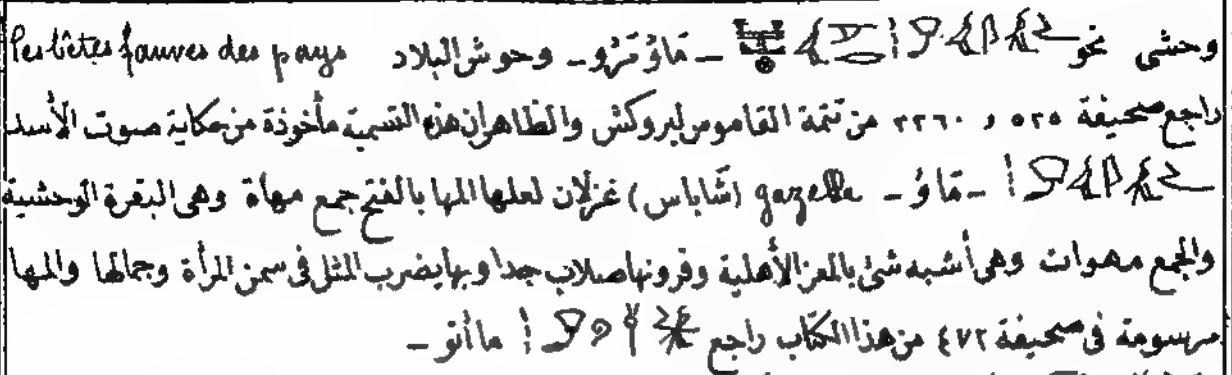 وحشى نحو – مَاؤُ تَرُو – وحوش البلاد les bêtes fauves des pays
راجع صحيفة ٥٢٥ و ٢٢٦٠ من تتمة القاموس لبروكش والظاهر ان هذه التسمية مأخوذة من حكاية صوت الأسد
– مَاؤُ – gazelle (شَاباس) غزلان لعلها المها بالفتح جمع مهاة وهى البقرة الوحشية
والجمع مهوات وهى أشبه شئ بالمعز الأهلية وقرونها صلاب جدا وبها يضرب المثل فى سمن المرأة وجمالها والمها
مرسومة فى صحيفة ٤٧٢ من هذا الكتاب راجع ماأتو –